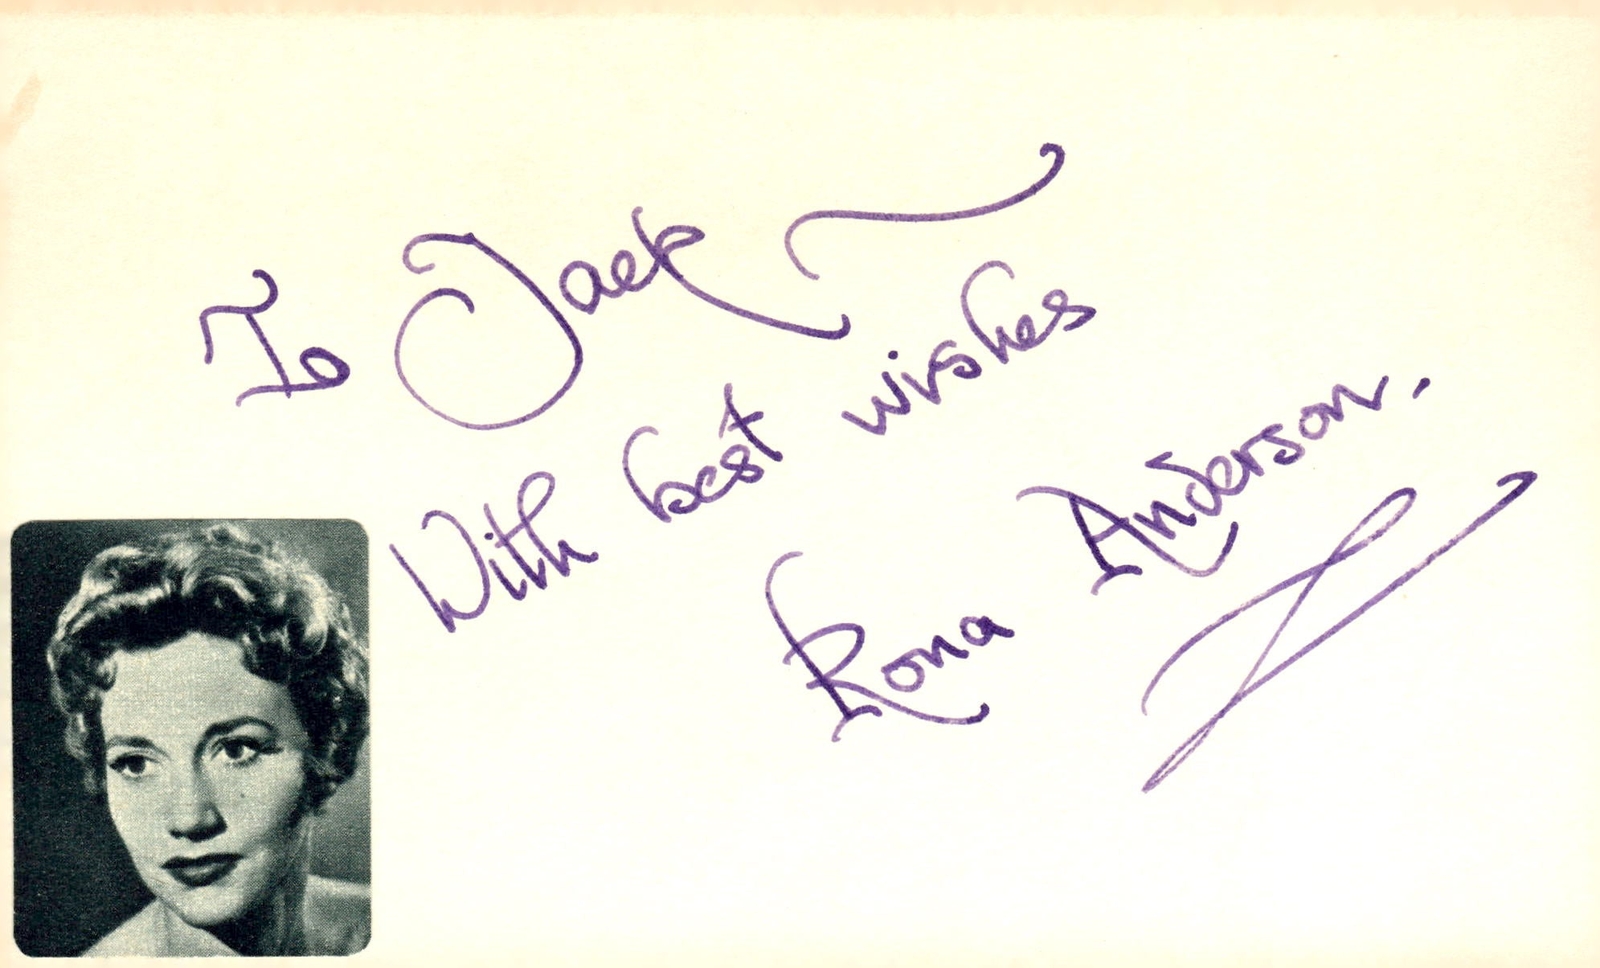 To Jack
With best wishes
Rona Anderson.